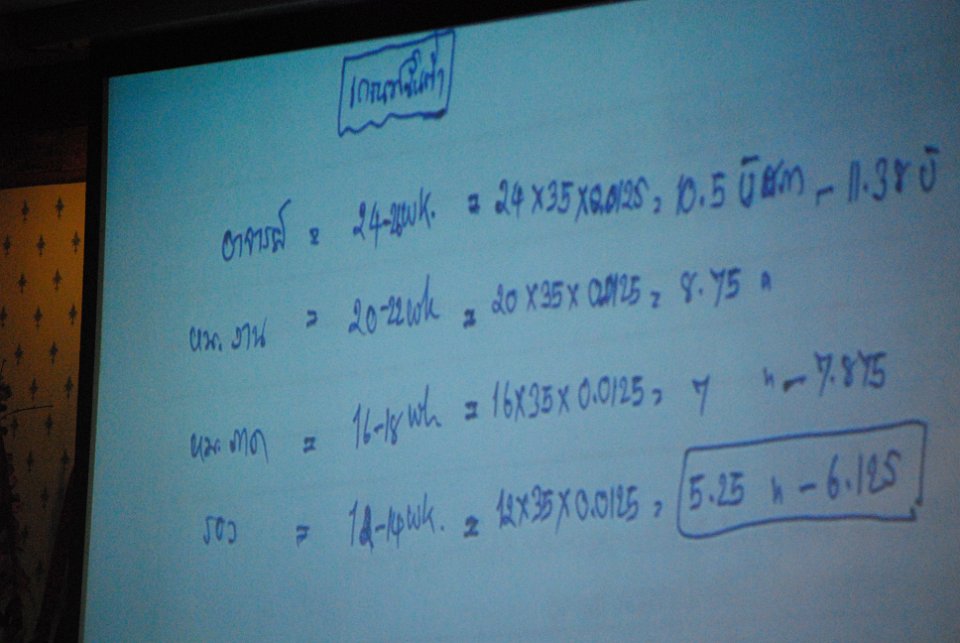 เกณฑ์ขั้นต่ำ
อาจารย์ = 24-26 พค. = 24×35×0.0125 = 10.5 - 11.38
หน.งาน = 20-22 พค = 20×35×0.0125 = 8.75 "
หน.ภาค = 16-18 พค = 16×35×0.0125 = 7 " - 7.875
รอง = 12-14 พค. = 12×35×0.0125 = 5.25 " - 6.125